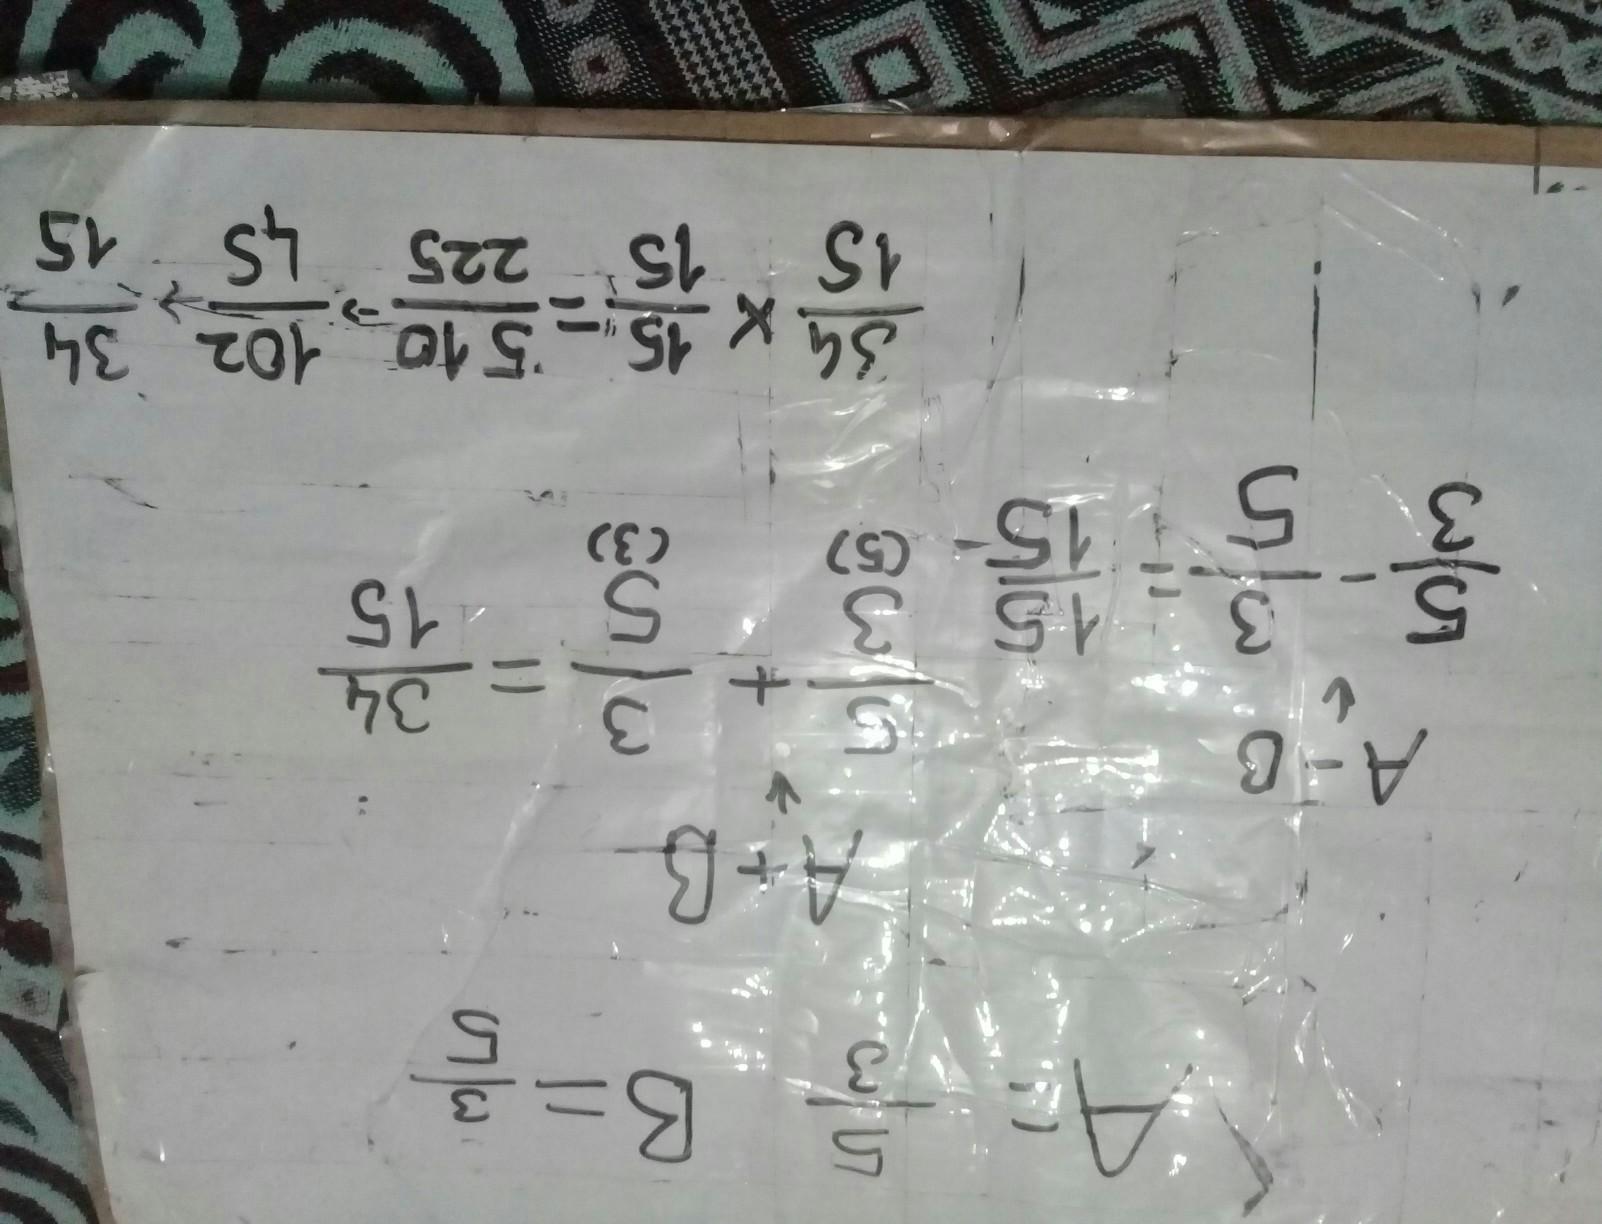 A = 5/3 B = 3/5
A+B
↓
5/3(5) + 3/5(3) = 34/15
A-B
↓
5/3 - 3/5 = 15/15
34/15 × 15/15 = 510/225 → 102/45 → 34/15